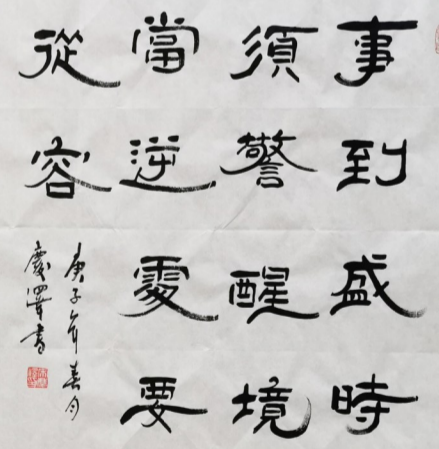 事到盛時
須警醒境
當逆處要
從容
庚子年春月
慶澤書